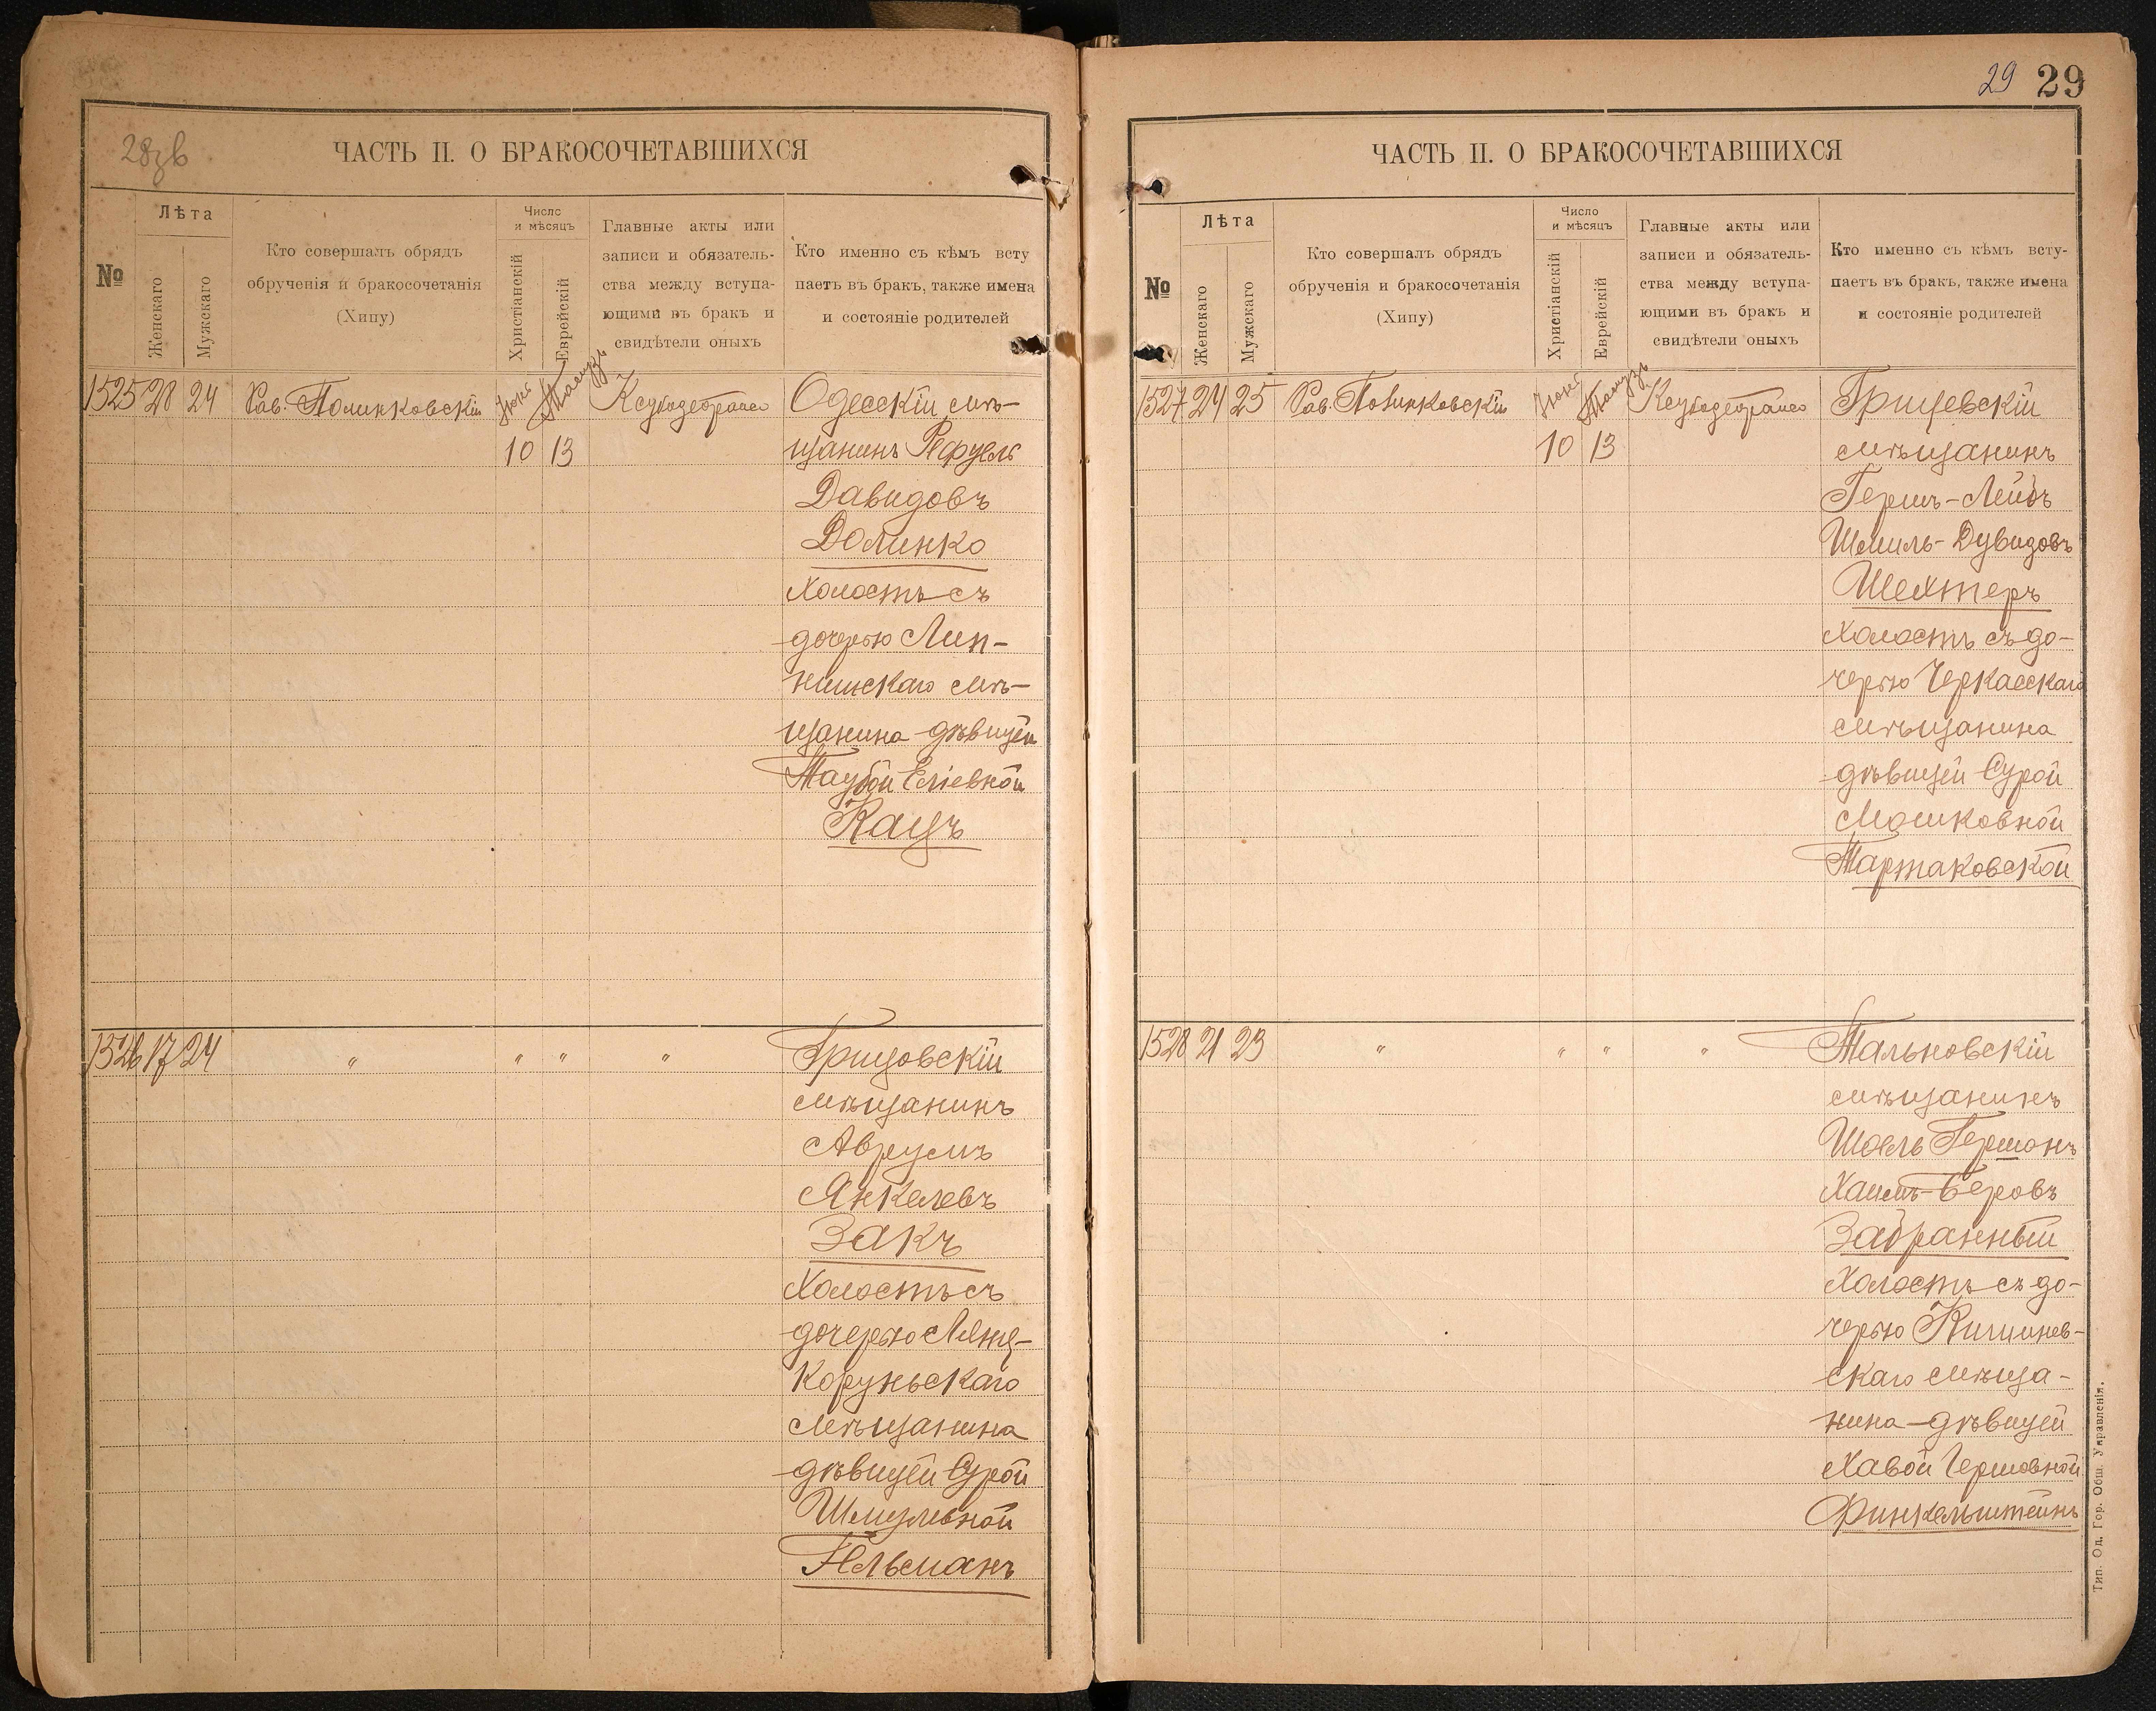 28 об
ЧАСТЬ II. О БРАКОСОЧЕТАВШИХСЯ
№
Лѣта
Женскаго
Мужскаго
Кто совершалъ обрядъ
обрученія и бракосочетанія
(Хипу)
Число
и мѣсяцъ
Христіанскій
Еврейскій
Главные акты или
записи и обязатель-
ства между вступа-
ющими въ бракъ и
свидѣтели оныхъ
Кто именно съ кѣмъ всту
паетъ въ бракъ, также имена
и состояніе родителей
1525 28 24 Рав. Полинковскій Іюня Тамузъ Одесскій мѣ-
10 13 щанинъ Рефуель
Давидовъ
Долинко
Холостъ съ
дочерью Лип-
канскаго мѣ-
щанина дѣвицей
Таубой Еліевной
Кацъ
1526 17 24 " " " " Грицовскій
мѣщанинъ
Аврумъ
Янкелевъ
Закъ
Холостъ съ
дочерью Лянц-
коруньскаго
мѣщанина
дѣвицей Сурой
Шмулевной
Гельманъ
29 29
ЧАСТЬ II. О БРАКОСОЧЕТАВШИХСЯ
№
Лѣта
Женскаго
Мужскаго
Кто совершалъ обрядъ
обрученія и бракосочетанія
(Хипу)
Число
и мѣсяцъ
Христіанскій
Еврейскій
Главные акты или
записи и обязатель-
ства между вступа-
ющими въ бракъ и
свидѣтели оныхъ
Кто именно съ кѣмъ всту-
паетъ въ бракъ, также имена
и состояніе родителей
1527 24 25 Рав. Полинковскій Іюня Тамузъ Грицевскій
10 13 мѣщанинъ
Гершъ-Лейбъ
Шмиль-Дувидовъ
Шехтеръ
Холостъ съ до-
черью Черкасскаго
мѣщанина
дѣвицей Сурой
Мошковной
Тартаковской
1528 21 23 " " " " Тальновскій
мѣщанинъ
Шоель Гершонъ
Хаимъ-Беровъ
Забранный
Холостъ съ до-
черью Кишинев-
скаго мѣща-
нина-дѣвицей
Хавой Гершовной
Финкельштейнъ
Тип. Од. Гор. Общ. Управленія.